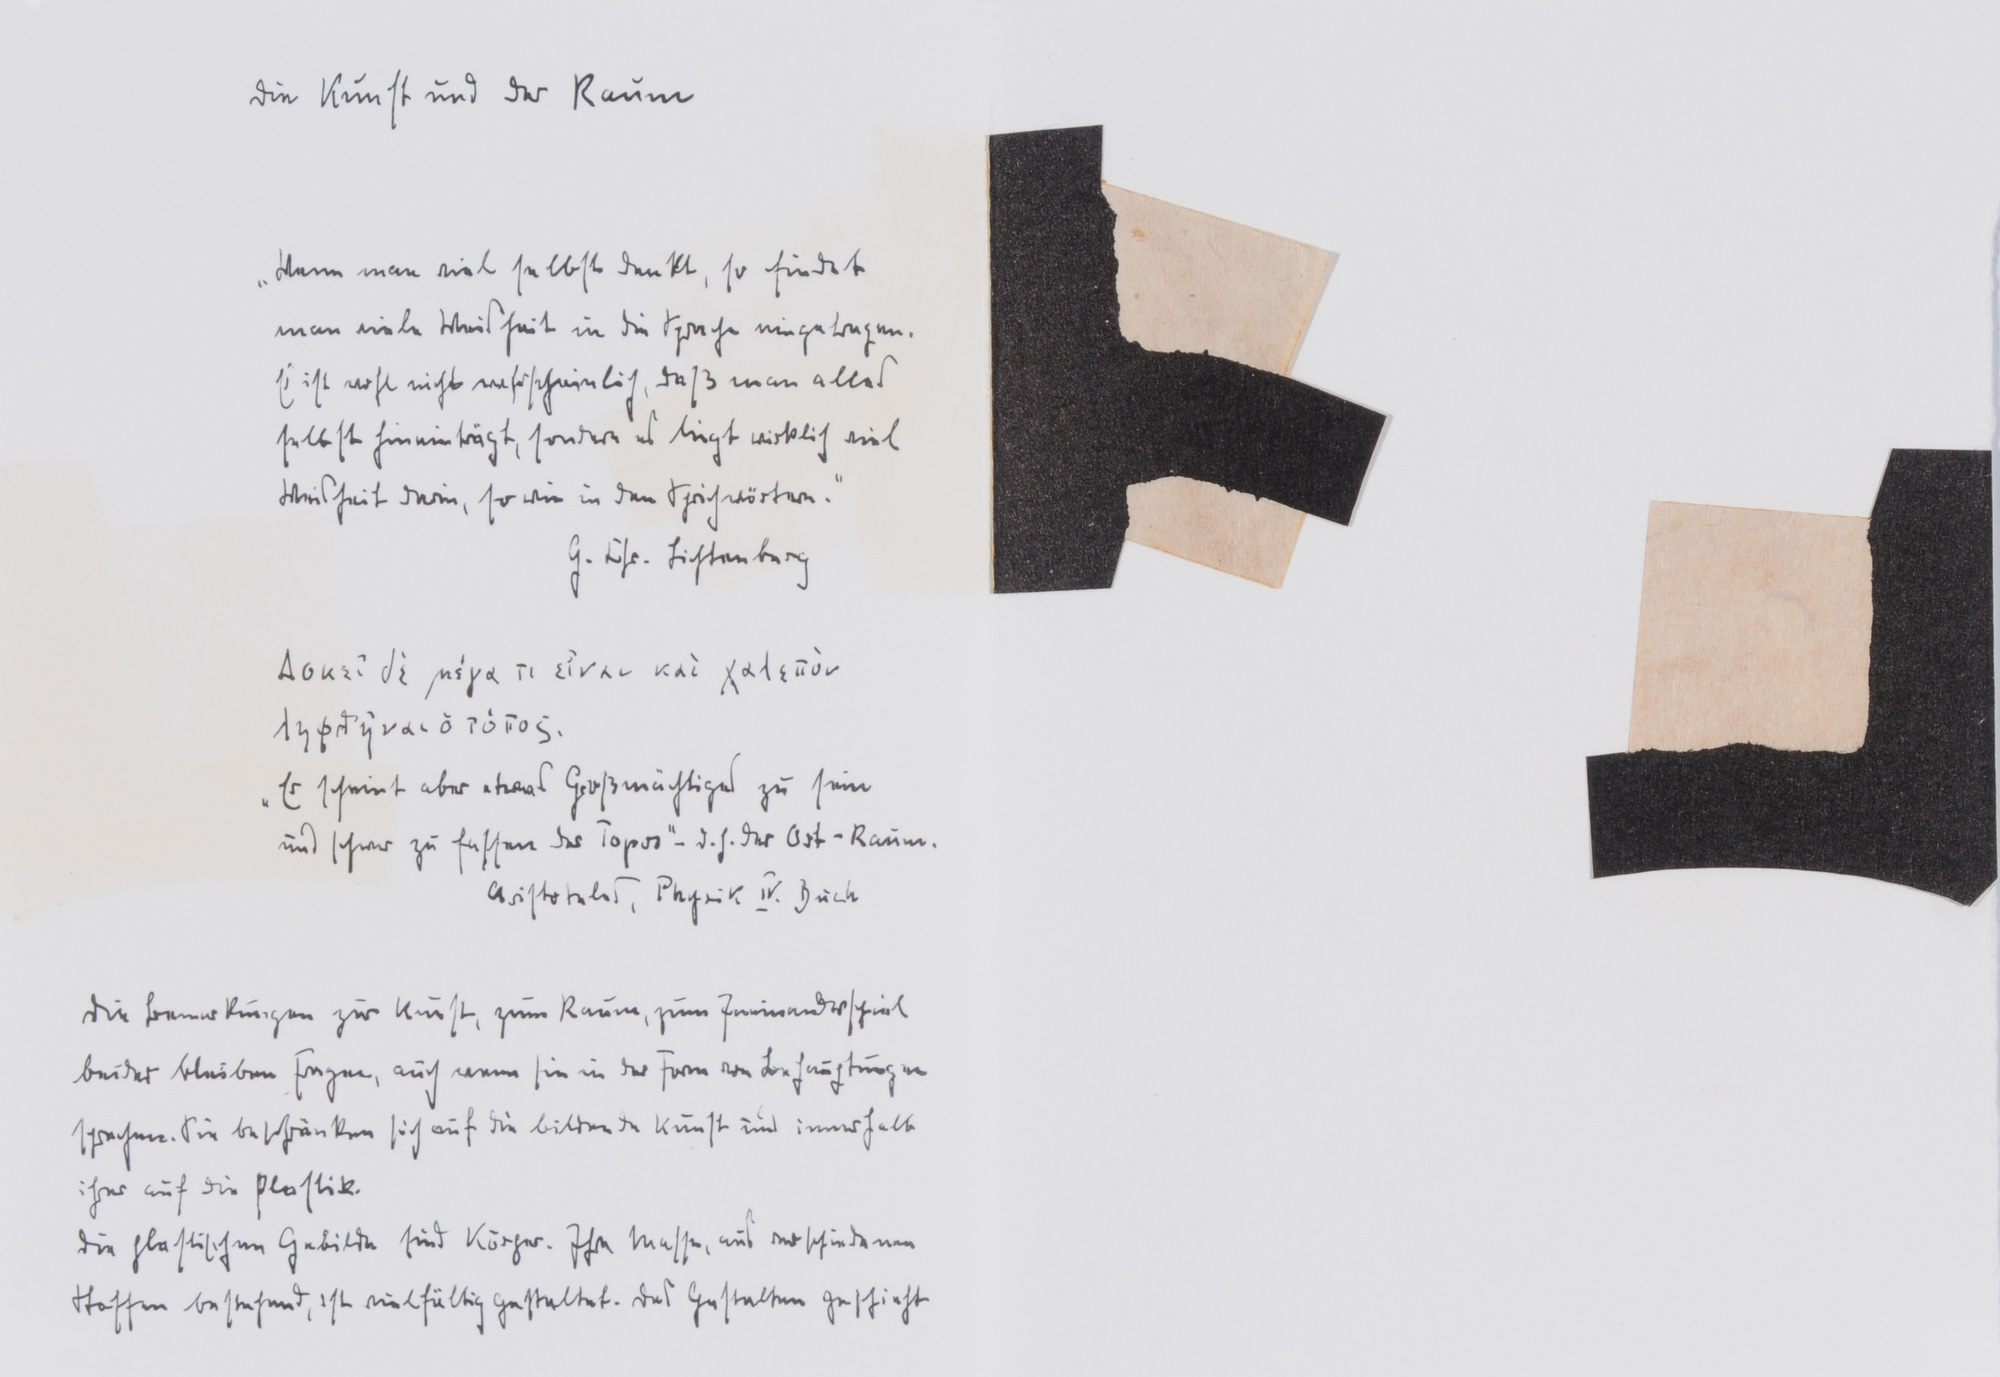 Die Kunst und der Raum
„Wenn man viel selbst denkt, so findet
man viele Weisheit in die Sprache eingetragen.
Es ist wohl nicht wahrscheinlich, daß man alles
selbst hineinträgt, sondern es liegt wirklich viel
Weisheit darin, so wie in den Sprichwörtern."
G. Chr. Lichtenberg
Δοκεῖ δὲ μέγα τι εἶναι καὶ χαλεπὸν
ληφθῆναι ὁ τόπος.
„Es scheint aber etwas Großmächtiges zu sein
und schwer zu fassen der Topos" – d.h. der Ort-Raum.
Aristoteles, Physik IV. Buch
Die Bemerkungen zur Kunst, zum Raum, zum Ineinanderspiel
beider bleiben Fragen, auch wenn sie in der Form von Behauptungen
sprechen. Sie beschränken sich auf die bildende Kunst und innerhalb
ihrer auf die Plastik.
Die plastischen Gebilde sind Körper. Ihre Masse, aus verschiedenen
Stoffen bestehend, ist vielfältig gestaltet. Das Gestalten geschieht